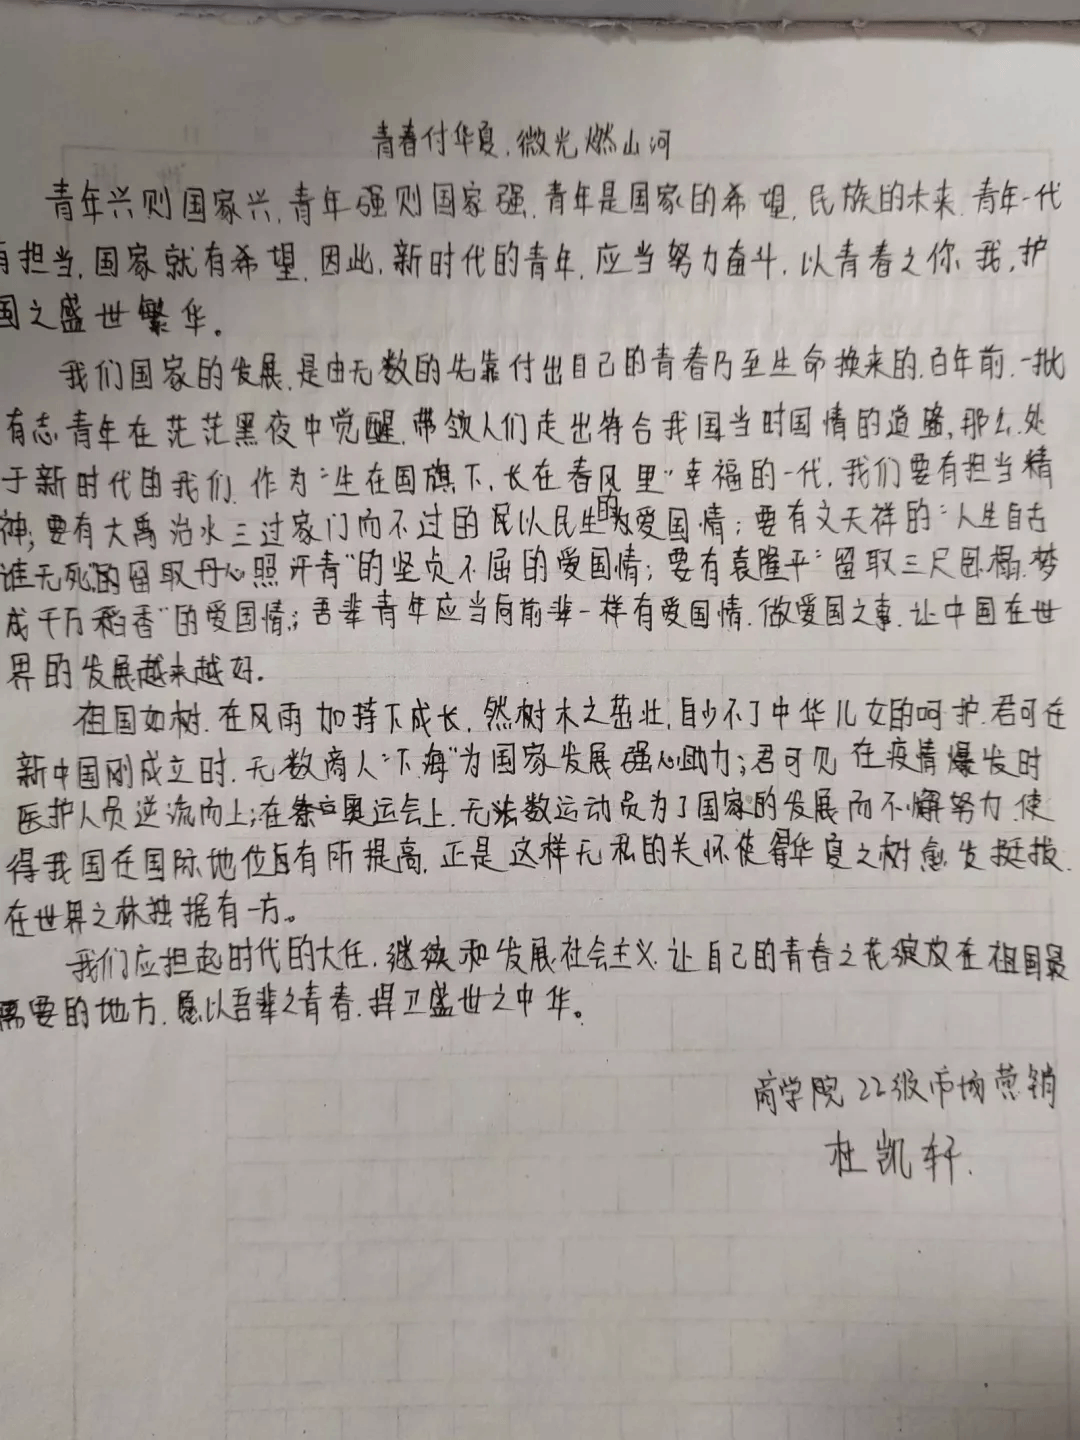 青春付华夏,微光燃山河
青年兴则国家兴,青年强则国家强,青年是国家的希望,民族的未来,青年一代
有担当,国家就有希望,因此,新时代的青年,应当努力奋斗,以青春之你我,护
国之盛世繁华。
我们国家的发展,是由无数的先靠付出自己的青春乃至生命换来的,百年前,一批
有志青年在茫茫黑夜中觉醒,带领人们走出符合我国当时国情的道路,那么,处
于新时代的我们,作为“生在国旗下,长在春风里”幸福的一代,我们要有担当精
神;要有大禹治水三过家门而不过的民以民生的为爱国情;要有文天祥的“人生自古
谁无死的留取丹心照汗青”的坚贞不屈的爱国情;要有袁隆平“留取三尺卧榻,梦
成千万稻香”的爱国情;吾辈青年应当向前辈一样有爱国情,做爱国之事,让中国在世
界的发展越来越好.
祖国如树,在风雨加持下成长,然树木之茁壮,自少不了中华儿女的呵护.君可在
新中国刚成立时,无数商人“下海”为国家发展强心助力;君可见在疫情爆发时
医护人员逆流而上;在奥运会上,无法数运动员为了国家的发展而不懈努力,使
得我国在国际地位有所提高,正是这样无私的关怀使得华夏之树愈发挺拔,
在世界之林独据有一方。
我们应担起时代的大任,继续和发展社会主义,让自己的青春之花绽放在祖国最
需要的地方,愿以吾辈之青春,捍卫盛世之中华。
商学院22级市场营销
杜凯轩.